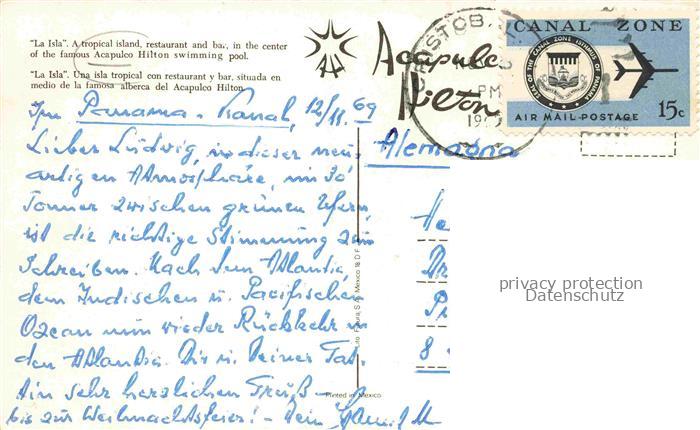 "La Isla". A tropical island, restaurant and bar, in the center
of the famous Acapulco Hilton swimming pool.
"La Isla". Una isla tropical con restaurant y bar, situada en
medio de la famosa alberca del Acapulco Hilton.
Acapulco
Hilton
CANAL ZONE
SEAL OF THE CANAL ZONE ISTHMUS OF PANAMA
15c
AIR MAIL POSTAGE
PM
Im Panama-Kanal, 12/11. 69
Lieber Ludwig, in dieser
artigen Atmosphäre, im
zwischen grünen Ufern,
ist die richtige Stimmung zum
Schreiben. Nach dem Atlantic,
dem Indischen u. Pacifischen
Ozean nun wieder Rückkehr in
den Atlantic. Dir u. Deiner
sehr herzlichen Gruß –
bis zur Weihnachtsfeier! – Dein
Alemagna
He
Dr
8
Printed in Mexico
privacy protection
Datenschutz